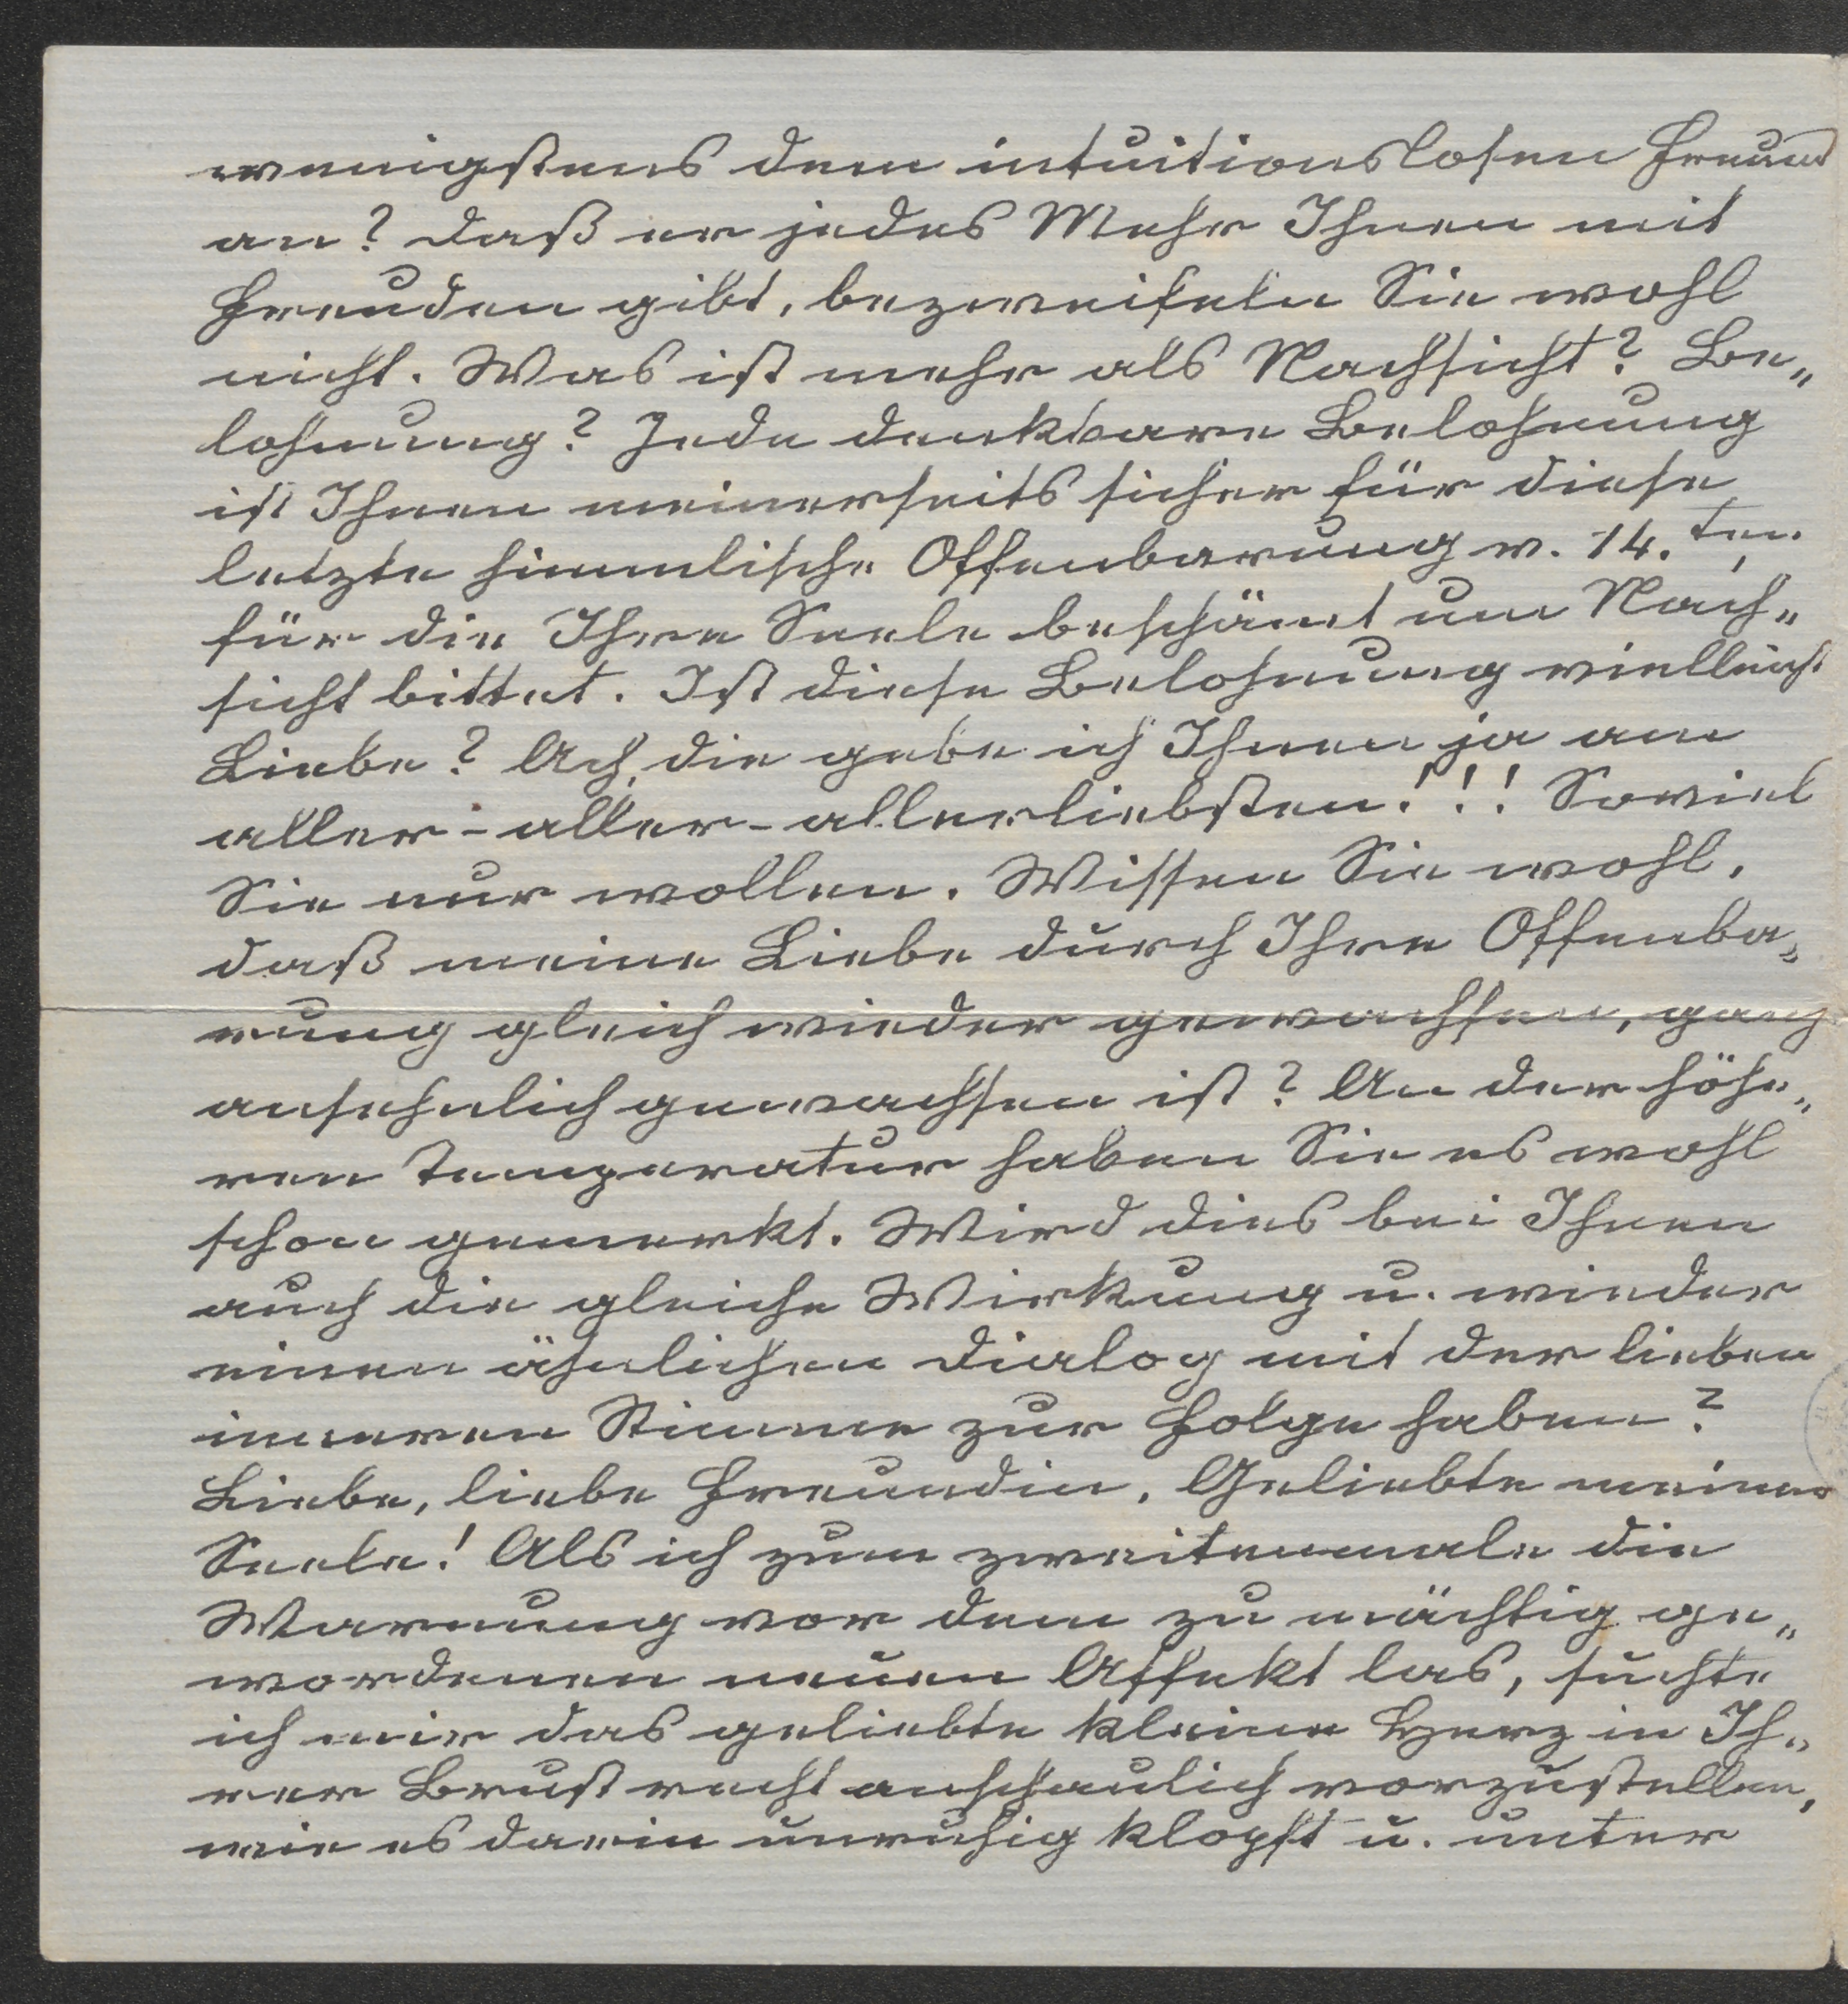 wenigstens dem intuitionslosen Freund
an? Daß er jedes Mehr Ihnen mit
Freuden gibt, bezweifeln Sie wohl
nicht. Was ist mehr als Nachsicht? Be„
lohnung? Jede denkbare Belohnung
ist Ihnen meinerseits sicher für diese
letzte himmlische Offenbarung v. 14. ten,
für die Ihre Seele beschämt um Nach„
sicht bittet. Ist diese Belohnung vielleicht
Liebe? Ach, die gebe ich Ihnen ja am
aller-aller-allerliebsten!!! Soviel
Sie nur wollen. Wissen Sie wohl,
daß meine Liebe durch Ihre Offenba„
rung gleich wieder gewachsen, ganz
ansehnlich gewachsen ist? An der höhe„
ren Temperatur haben Sie es wohl
schon gemerkt. Wird dies bei Ihnen
auch die gleiche Wirkung u. wieder
einen ähnlichen Dialog mit der lieben
inneren Stimme zur Folge haben?
Liebe, liebe Freundin, Geliebte meiner
Seele! Als ich zum zweitenmale die
Warnung vor dem zu mächtig ge„
wordenen neuen Affekt las, suchte
ich mir das geliebte kleine Herz in Ih„
rer Brust recht anschaulich vorzustellen,
wie es darin unruhig klopft u. unter